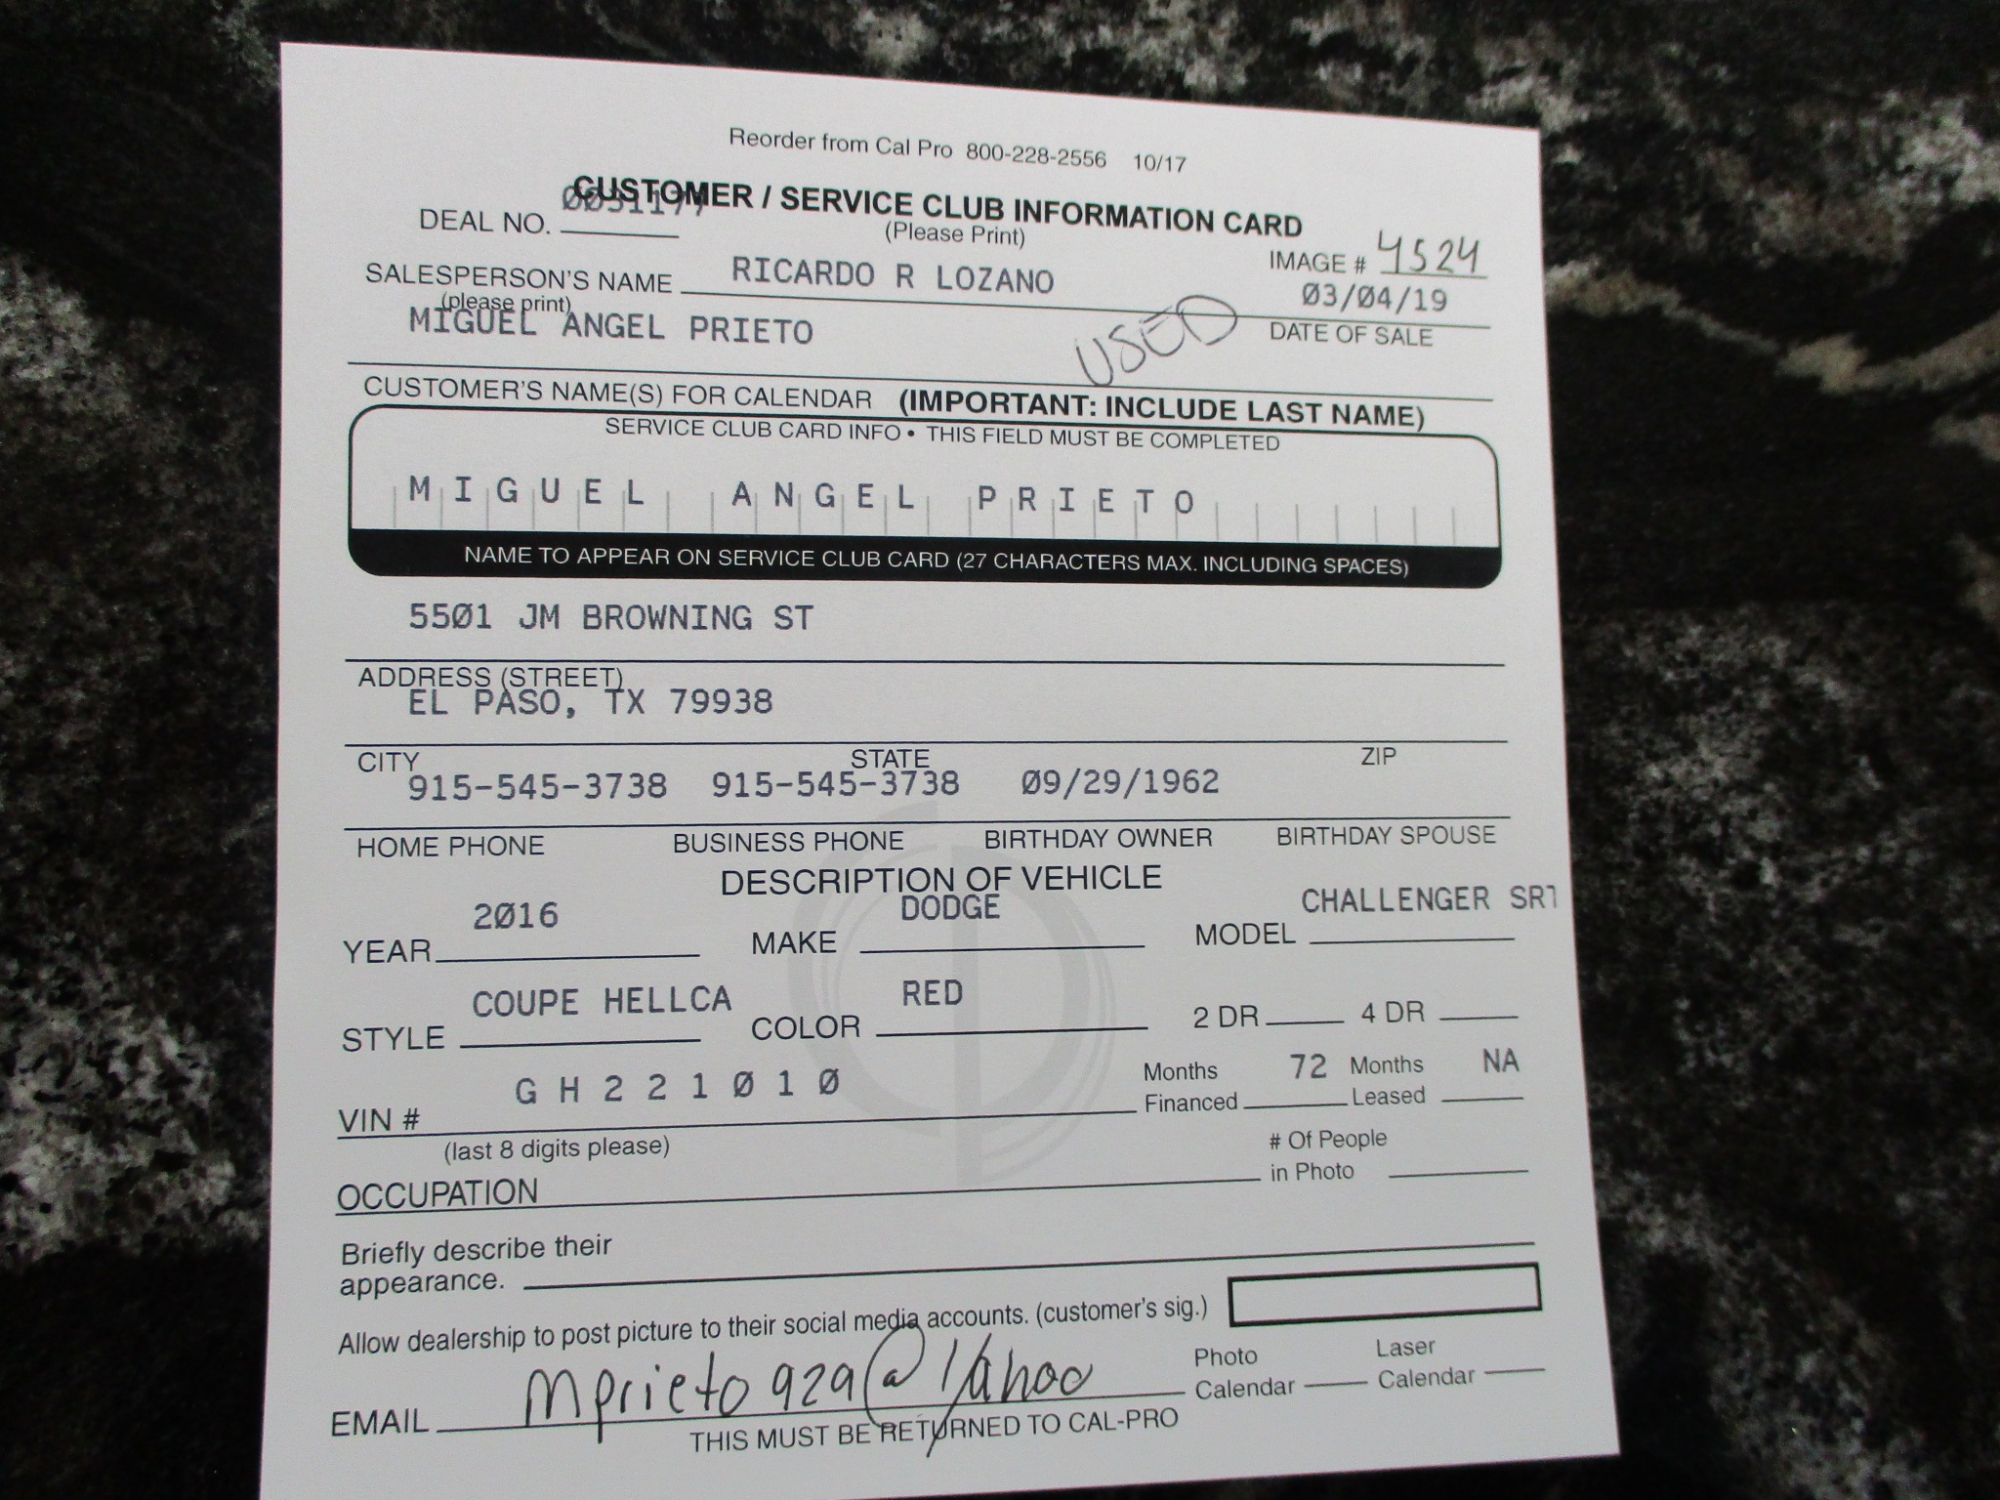 Reorder from Cal Pro 800-228-2556 10/17
CUSTOMER / SERVICE CLUB INFORMATION CARD
(Please Print)
DEAL NO. 0031177
IMAGE # 4524
SALESPERSON'S NAME RICARDO R LOZANO
(please print)
03/04/19
DATE OF SALE
MIGUEL ANGEL PRIETO
USED
CUSTOMER'S NAME(S) FOR CALENDAR (IMPORTANT: INCLUDE LAST NAME)
SERVICE CLUB CARD INFO • THIS FIELD MUST BE COMPLETED
MIGUEL ANGEL PRIETO
NAME TO APPEAR ON SERVICE CLUB CARD (27 CHARACTERS MAX. INCLUDING SPACES)
5501 JM BROWNING ST
ADDRESS (STREET)
EL PASO, TX 79938
CITY STATE ZIP
915-545-3738 915-545-3738 09/29/1962
HOME PHONE BUSINESS PHONE BIRTHDAY OWNER BIRTHDAY SPOUSE
DESCRIPTION OF VEHICLE
YEAR 2016 MAKE DODGE MODEL CHALLENGER SRT
STYLE COUPE HELLCA COLOR RED 2 DR 4 DR
VIN # GH221010
(last 8 digits please)
Months Financed 72 Months Leased NA
OCCUPATION
# Of People in Photo
Briefly describe their
appearance.
Allow dealership to post picture to their social media accounts. (customer's sig.)
EMAIL mprieto929@Yahoo
Photo Calendar Laser Calendar
THIS MUST BE RETURNED TO CAL-PRO